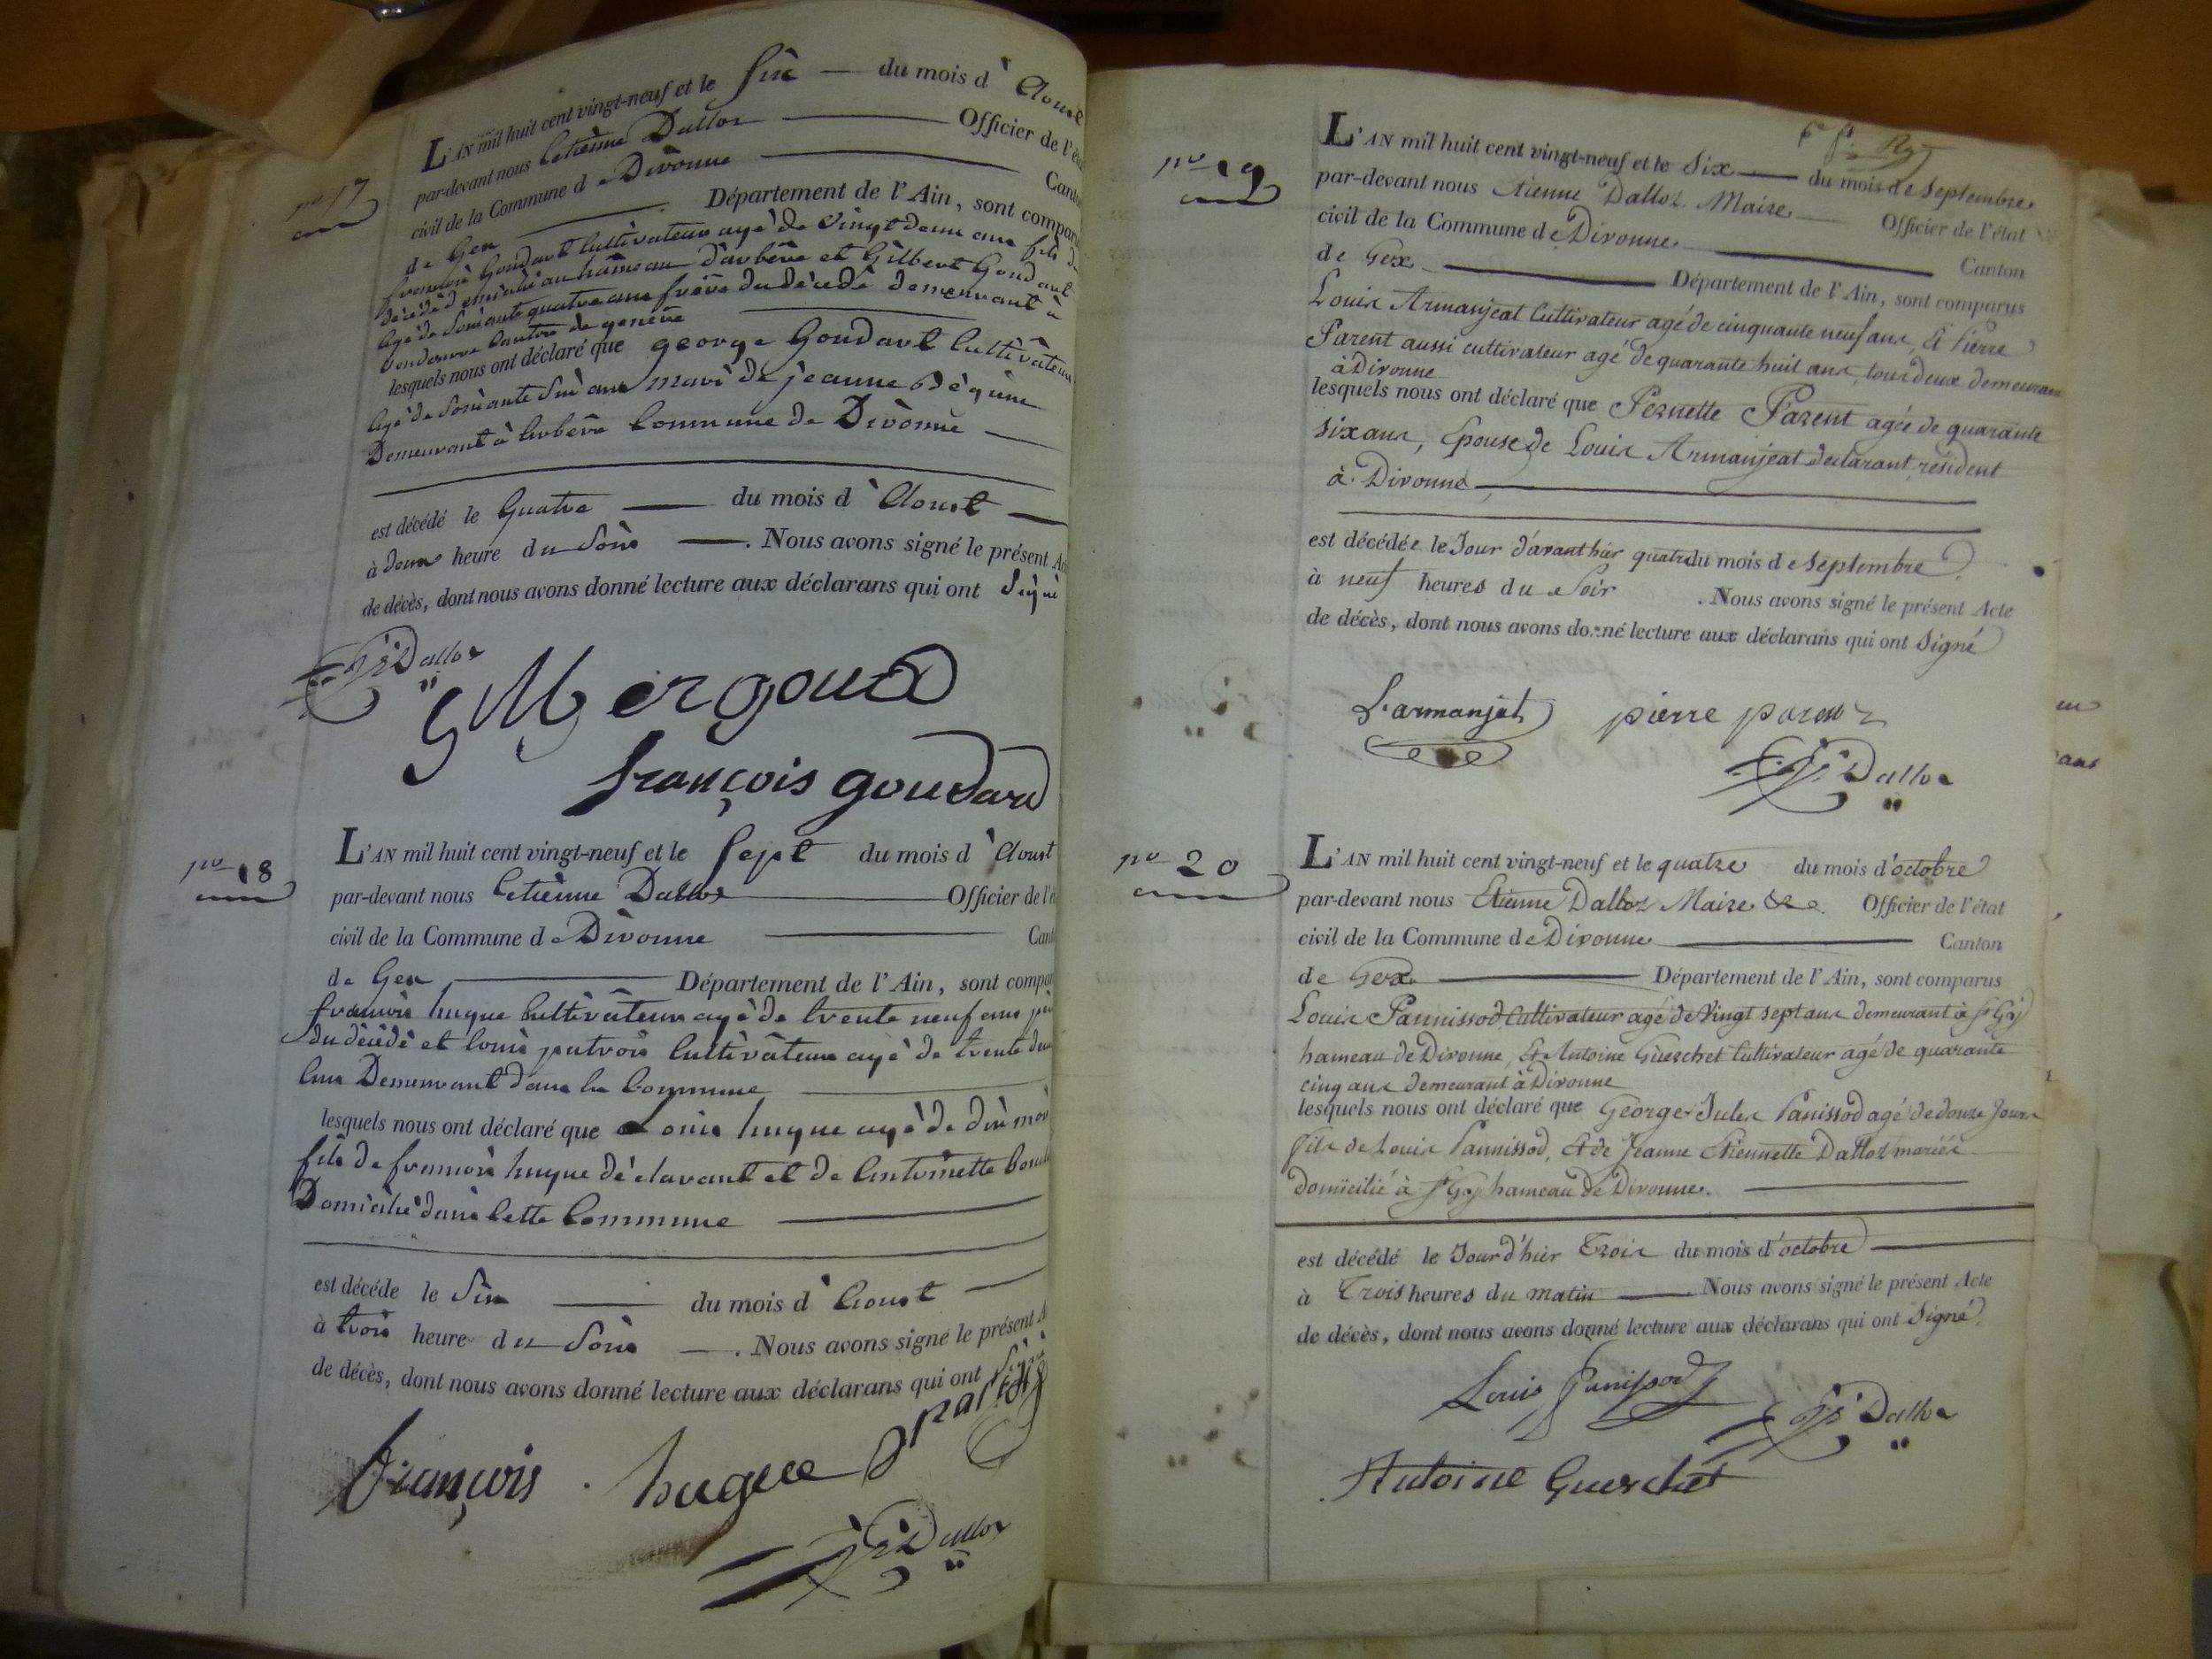 no 17
L'AN mil huit cent vingt-neuf et le six du mois d'Aoust
par-devant nous Etienne Dalloz Officier de l'éta
civil de la Commune de Divonne Canto
de Gex Département de l'Ain, sont comparu
françois Goudart Cultivateur agé de vingt deux ans fils du
décédé domicilié au hameau d'arbère et Gilbert Goudart
agé de soixante quatre ans frère du décédé demeurant à
Vendoeuvre Canton de genève
lesquels nous ont déclaré que george Goudart Cultivateur
agé de soixante six ans mari de jeanne
Demeurant à Arbère Commune de Divonne
est décédé le Quatre du mois d'Aoust
à deux heure du Soir . Nous avons signé le présent Ac
de décès, dont nous avons donné lecture aux déclarans qui ont Signé
Dalloz
françois goudard
no 18
L'AN mil huit cent vingt-neuf et le Sept du mois d'Aoust
par-devant nous Etienne Dalloz Officier de l'é
civil de la Commune de Divonne Cant
de Gex Département de l'Ain, sont compar
françois hugue Cultivateur agé de trente neuf ans
du décédé et louis patrois Cultivateur agé de trente deux
ans Demeurant dans la Commune
lesquels nous ont déclaré que Louis hugue agé de dix mois
fils de françois hugue déclarant et de Antoinette
Domicilié dans Cette Commune
est décéde le Six du mois d'Aoust
à trois heure du Soir . Nous avons signé le présent A
de décès, dont nous avons donné lecture aux déclarans qui ont Signé
françois hugue
Dalloz
no 19
L'AN mil huit cent vingt-neuf et le Six du mois de Septembre
par-devant nous Etienne Dalloz Maire Officier de l'état
civil de la Commune de Divonne Canton
de Gex Département de l'Ain, sont comparus
Louis Armanjeat Cultivateur agé de cinquante neuf ans, Et Pierre
Parent aussi cultivateur agé de quarante huit ans, tous deux demeurans
à Divonne
lesquels nous ont déclaré que Pernette Parent agée de quarante
six ans, Epouse de Louis Armanjeat declarant résident
à Divonne
est décédée le Jour d'avant hier quatre du mois de Septembre
à neuf heures du Soir . Nous avons signé le présent Acte
de décès, dont nous avons donné lecture aux déclarans qui ont Signé
L. armanjat pierre parent
Dalloz
no 20
L'AN mil huit cent vingt-neuf et le quatre du mois d'octobre
par-devant nous Etienne Dalloz Maire &a. Officier de l'état
civil de la Commune de Divonne Canton
de Gex Département de l'Ain, sont comparus
Louis Pannissod Cultivateur agé de Vingt sept ans demeurant à St Gix
hameau de Divonne, Et Antoine Guerchet Cultivateur agé de quarante
cinq ans demeurant à Divonne
lesquels nous ont déclaré que George Jules Panissod agé de douze Jours
fils de Louis Pannissod, Et de Jeanne Etiennette Dalloz mariés
domicilié à St Gix hameau de Divonne.
est décédé le Jour d'hier Trois du mois d'octobre
à Trois heures du matin . Nous avons signé le présent Acte
de décès, dont nous avons donné lecture aux déclarans qui ont Signé
Louis Panissod
Dalloz
Antoine Guerchet